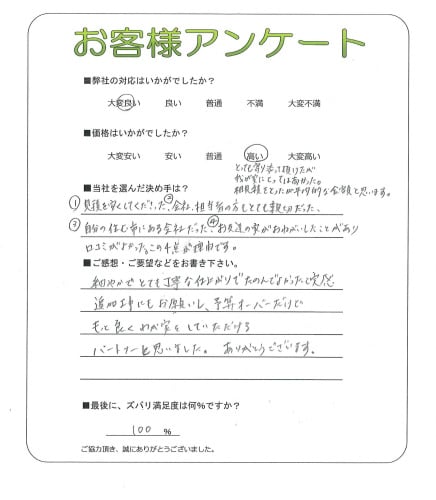 お客様アンケート
■弊社の対応はいかがでしたか?
大変良い 良い 普通 不満 大変不満
■価格はいかがでしたか?
大変安い 安い 普通 高い 大変高い
とても寄り添って頂けたが
我が家にとっては高かった。
相見積をとったが平均的な金額と思います。
■当社を選んだ決め手は?
①見積を安くしてくださった②会社、担当者の方もとても親切だった、
③自分の住む市にある会社だった④お友達の家がおねがいしたことがあり
口コミがよかったこの4点が理由です。
■ご感想・ご要望などをお書き下さい。
細やかでとても丁寧な仕上がりでたのんでよかったと実感
追加工事にもお願いし、予算オーバーだけど
もっと良くわが家をしていただける
パートナーと思いました。ありがとうございます。
■最後に、ズバリ満足度は何%ですか?
100 %
ご協力頂き、誠にありがとうございました。